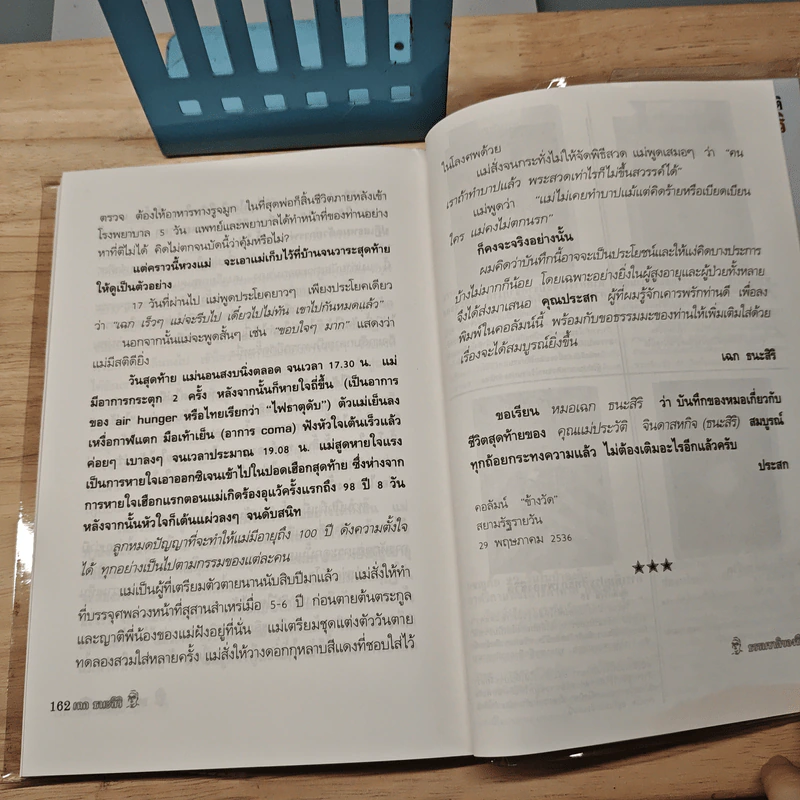 ตรวจ ต้องให้อาหารทางรูจมูก ในที่สุดพ่อก็สิ้นชีวิตภายหลังเข้า
โรงพยาบาล 5 วัน แพทย์และพยาบาลได้ทำหน้าที่ของท่านอย่าง
หาที่ติไม่ได้ คิดไม่ตกจนบัดนี้ว่าคุ้มหรือไม่?
แต่คราวนี้หวงแม่ จะเอาแม่เก็บไว้ที่บ้านจนวาระสุดท้าย
ให้ดูเป็นตัวอย่าง
17 วันที่ผ่านไป แม่พูดประโยคยาวๆ เพียงประโยคเดียว
ว่า "เฉก เร็วๆ แม่จะรีบไป เดี๋ยวไปไม่ทัน เขาไปกันหมดแล้ว"
นอกจากนั้นแม่จะพูดสั้นๆ เช่น "ขอบใจๆ มาก" แสดงว่า
แม่มีสติดียิ่ง
วันสุดท้าย แม่นอนสงบนิ่งตลอด จนเวลา 17.30 น. แม่
มีอาการกระตุก 2 ครั้ง หลังจากนั้นก็หายใจถี่ขึ้น (เป็นอาการ
ของ air hunger หรือไทยเรียกว่า "ไฟธาตุดับ") ตัวแม่เย็นลง
เหงื่อกาฬแตก มือเท้าเย็น (อาการ coma) ฟังหัวใจเต้นเร็วแล้ว
ค่อยๆ เบาลงๆ จนเวลาประมาณ 19.08 น. แม่สูดหายใจแรง
เป็นการหายใจเอาออกซิเจนเข้าไปในปอดเฮือกสุดท้าย ซึ่งห่างจาก
การหายใจเฮือกแรกตอนแม่เกิดร้องอุแว้ครั้งแรกถึง 98 ปี 8 วัน
หลังจากนั้นหัวใจก็เต้นแผ่วลงๆ จนดับสนิท
ลูกหมดปัญญาที่จะทำให้แม่มีอายุถึง 100 ปี ดังความตั้งใจ
ได้ ทุกอย่างเป็นไปตามกรรมของแต่ละคน
แม่เป็นผู้ที่เตรียมตัวตายนานนับสิบปีมาแล้ว แม่สั่งให้ทำ
ที่บรรจุศพล่วงหน้าที่สุสานสำเหร่เมื่อ 5-6 ปี ก่อนตายต้นตระกูล
และญาติพี่น้องของแม่ฝังอยู่ที่นั่น แม่เตรียมชุดแต่งตัววันตาย
ทดลองสวมใส่หลายครั้ง แม่สั่งให้วางดอกกุหลาบสีแดงที่ชอบใส่ไว้
162 เฉก ธนะสิริ
ในโลงศพด้วย
แม่สั่งจนกระทั่งไม่ให้จัดพิธีสวด แม่พูดเสมอๆ ว่า "คน
เราถ้าทำบาปแล้ว พระสวดเท่าไรก็ไม่ขึ้นสวรรค์ได้"
แม่พูดว่า "แม่ไม่เคยทำบาปแม้แต่คิดร้ายหรือเบียดเบียน
ใคร แม่คงไม่ตกนรก"
ก็คงจะจริงอย่างนั้น
ผมคิดว่าบันทึกนี้อาจจะเป็นประโยชน์และให้แง่คิดบางประการ
บ้างไม่มากก็น้อย โดยเฉพาะอย่างยิ่งในผู้สูงอายุและผู้ป่วยทั้งหลาย
จึงได้ส่งมาเสนอ คุณประสก ผู้ที่ผมรู้จักเคารพรักท่านดี เพื่อลง
พิมพ์ในคอลัมน์นี้ พร้อมกับขอธรรมมะของท่านให้เพิ่มเติมใส่ด้วย
เรื่องจะได้สมบูรณ์ยิ่งขึ้น
เฉก ธนะสิริ
ขอเรียน หมอเฉก ธนะสิริ ว่า บันทึกของหมอเกี่ยวกับ
ชีวิตสุดท้ายของ คุณแม่ประวัติ จินดาสหกิจ (ธนะสิริ) สมบูรณ์
ทุกถ้อยกระทงความแล้ว ไม่ต้องเติมอะไรอีกแล้วครับ
ประสก
คอลัมน์ "ข้างวัด"
สยามรัฐรายวัน
29 พฤษภาคม 2536
★★★